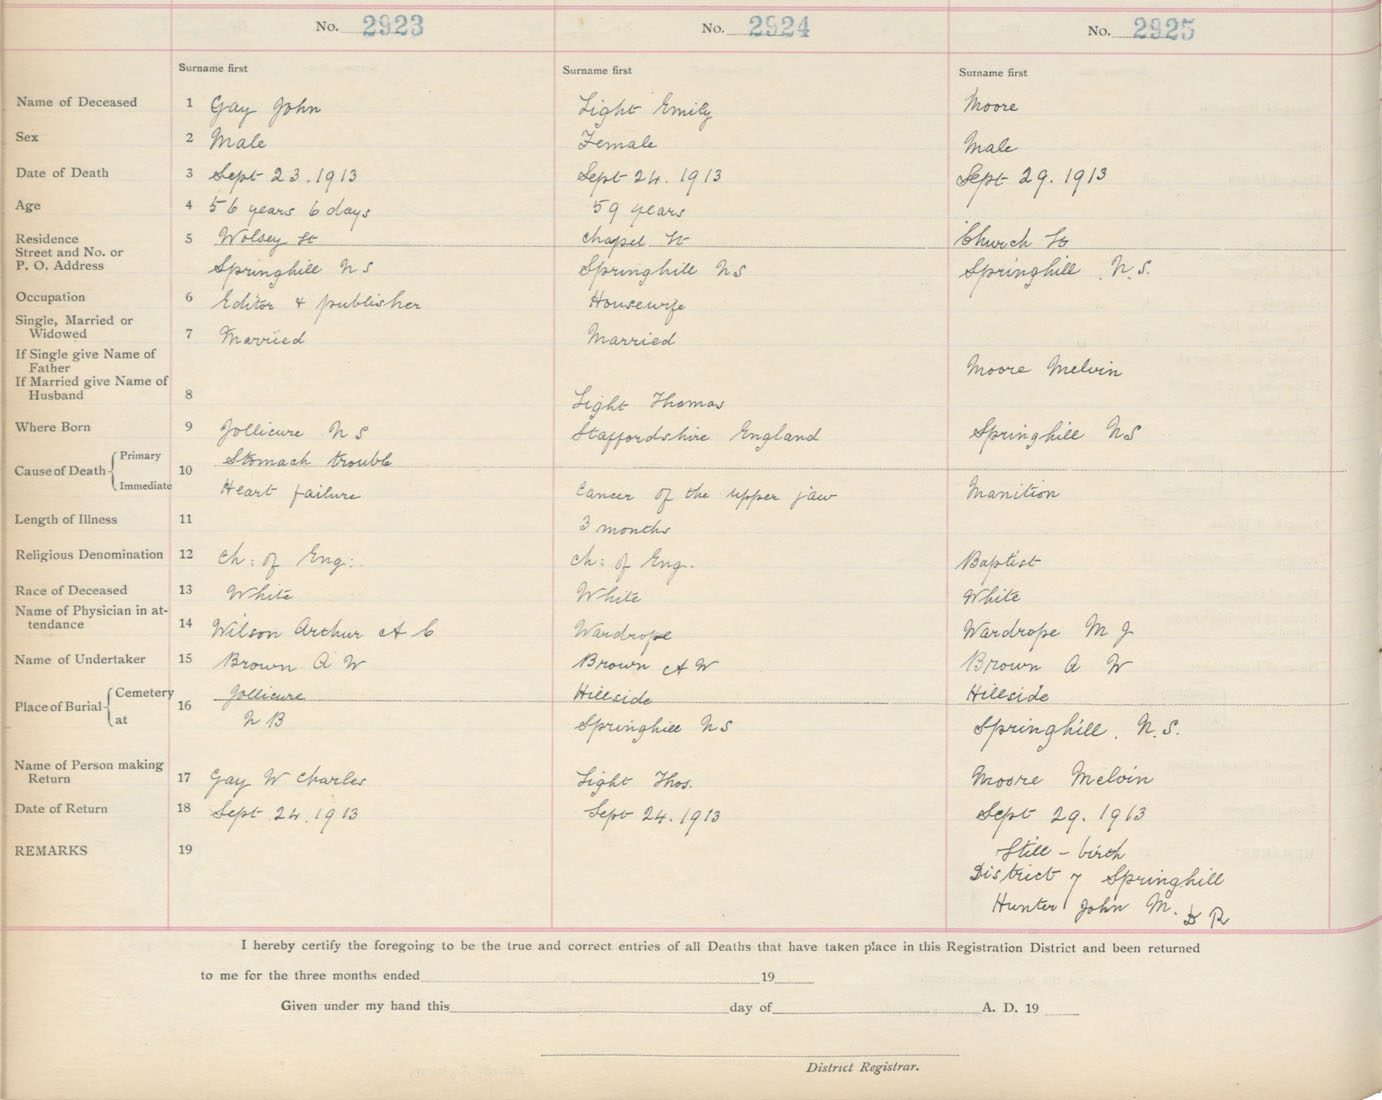 No. 2923 No. 2924 No. 2925
Surname first Surname first Surname first
Name of Deceased 1 Gay John Light Emily Moore
Sex 2 Male Female Male
Date of Death 3 Sept 23. 1913 Sept 24. 1913 Sept 29. 1913
Age 4 56 years 6 days 59 years
Residence 5 Wolsey St Chapel St Church St
Street and No. or
P. O. Address Springhill N S Springhill N S Springhill N.S.
Occupation 6 Editor & publisher Housewife
Single, Married or
Widowed 7 Married Married
If Single give Name of
Father Moore Melvin
If Married give Name of
Husband 8 Light Thomas
Where Born 9 Jollicure N S Staffordshire England Springhill N S
Cause of Death 10 Primary Stomach trouble
Immediate Heart failure Cancer of the upper jaw Manition
Length of Illness 11 3 months
Religious Denomination 12 Ch: of Eng: Ch: of Eng. Baptist
Race of Deceased 13 White White White
Name of Physician in at-
tendance 14 Wilson Arthur A C Wardrope Wardrope M J
Name of Undertaker 15 Brown A W Brown A W Brown A W
Place of Burial 16 Cemetery Jollicure Hillside Hillside
at N B Springhill N S Springhill. N.S.
Name of Person making
Return 17 Gay W Charles Light Thos. Moore Melvin
Date of Return 18 Sept 24. 1913 Sept 24. 1913 Sept 29. 1913
REMARKS 19 Still - birth
District 7 Springhill
Hunter John M. D R
I hereby certify the foregoing to be the true and correct entries of all Deaths that have taken place in this Registration District and been returned
to me for the three months ended 19
Given under my hand this day of A. D. 19
District Registrar.